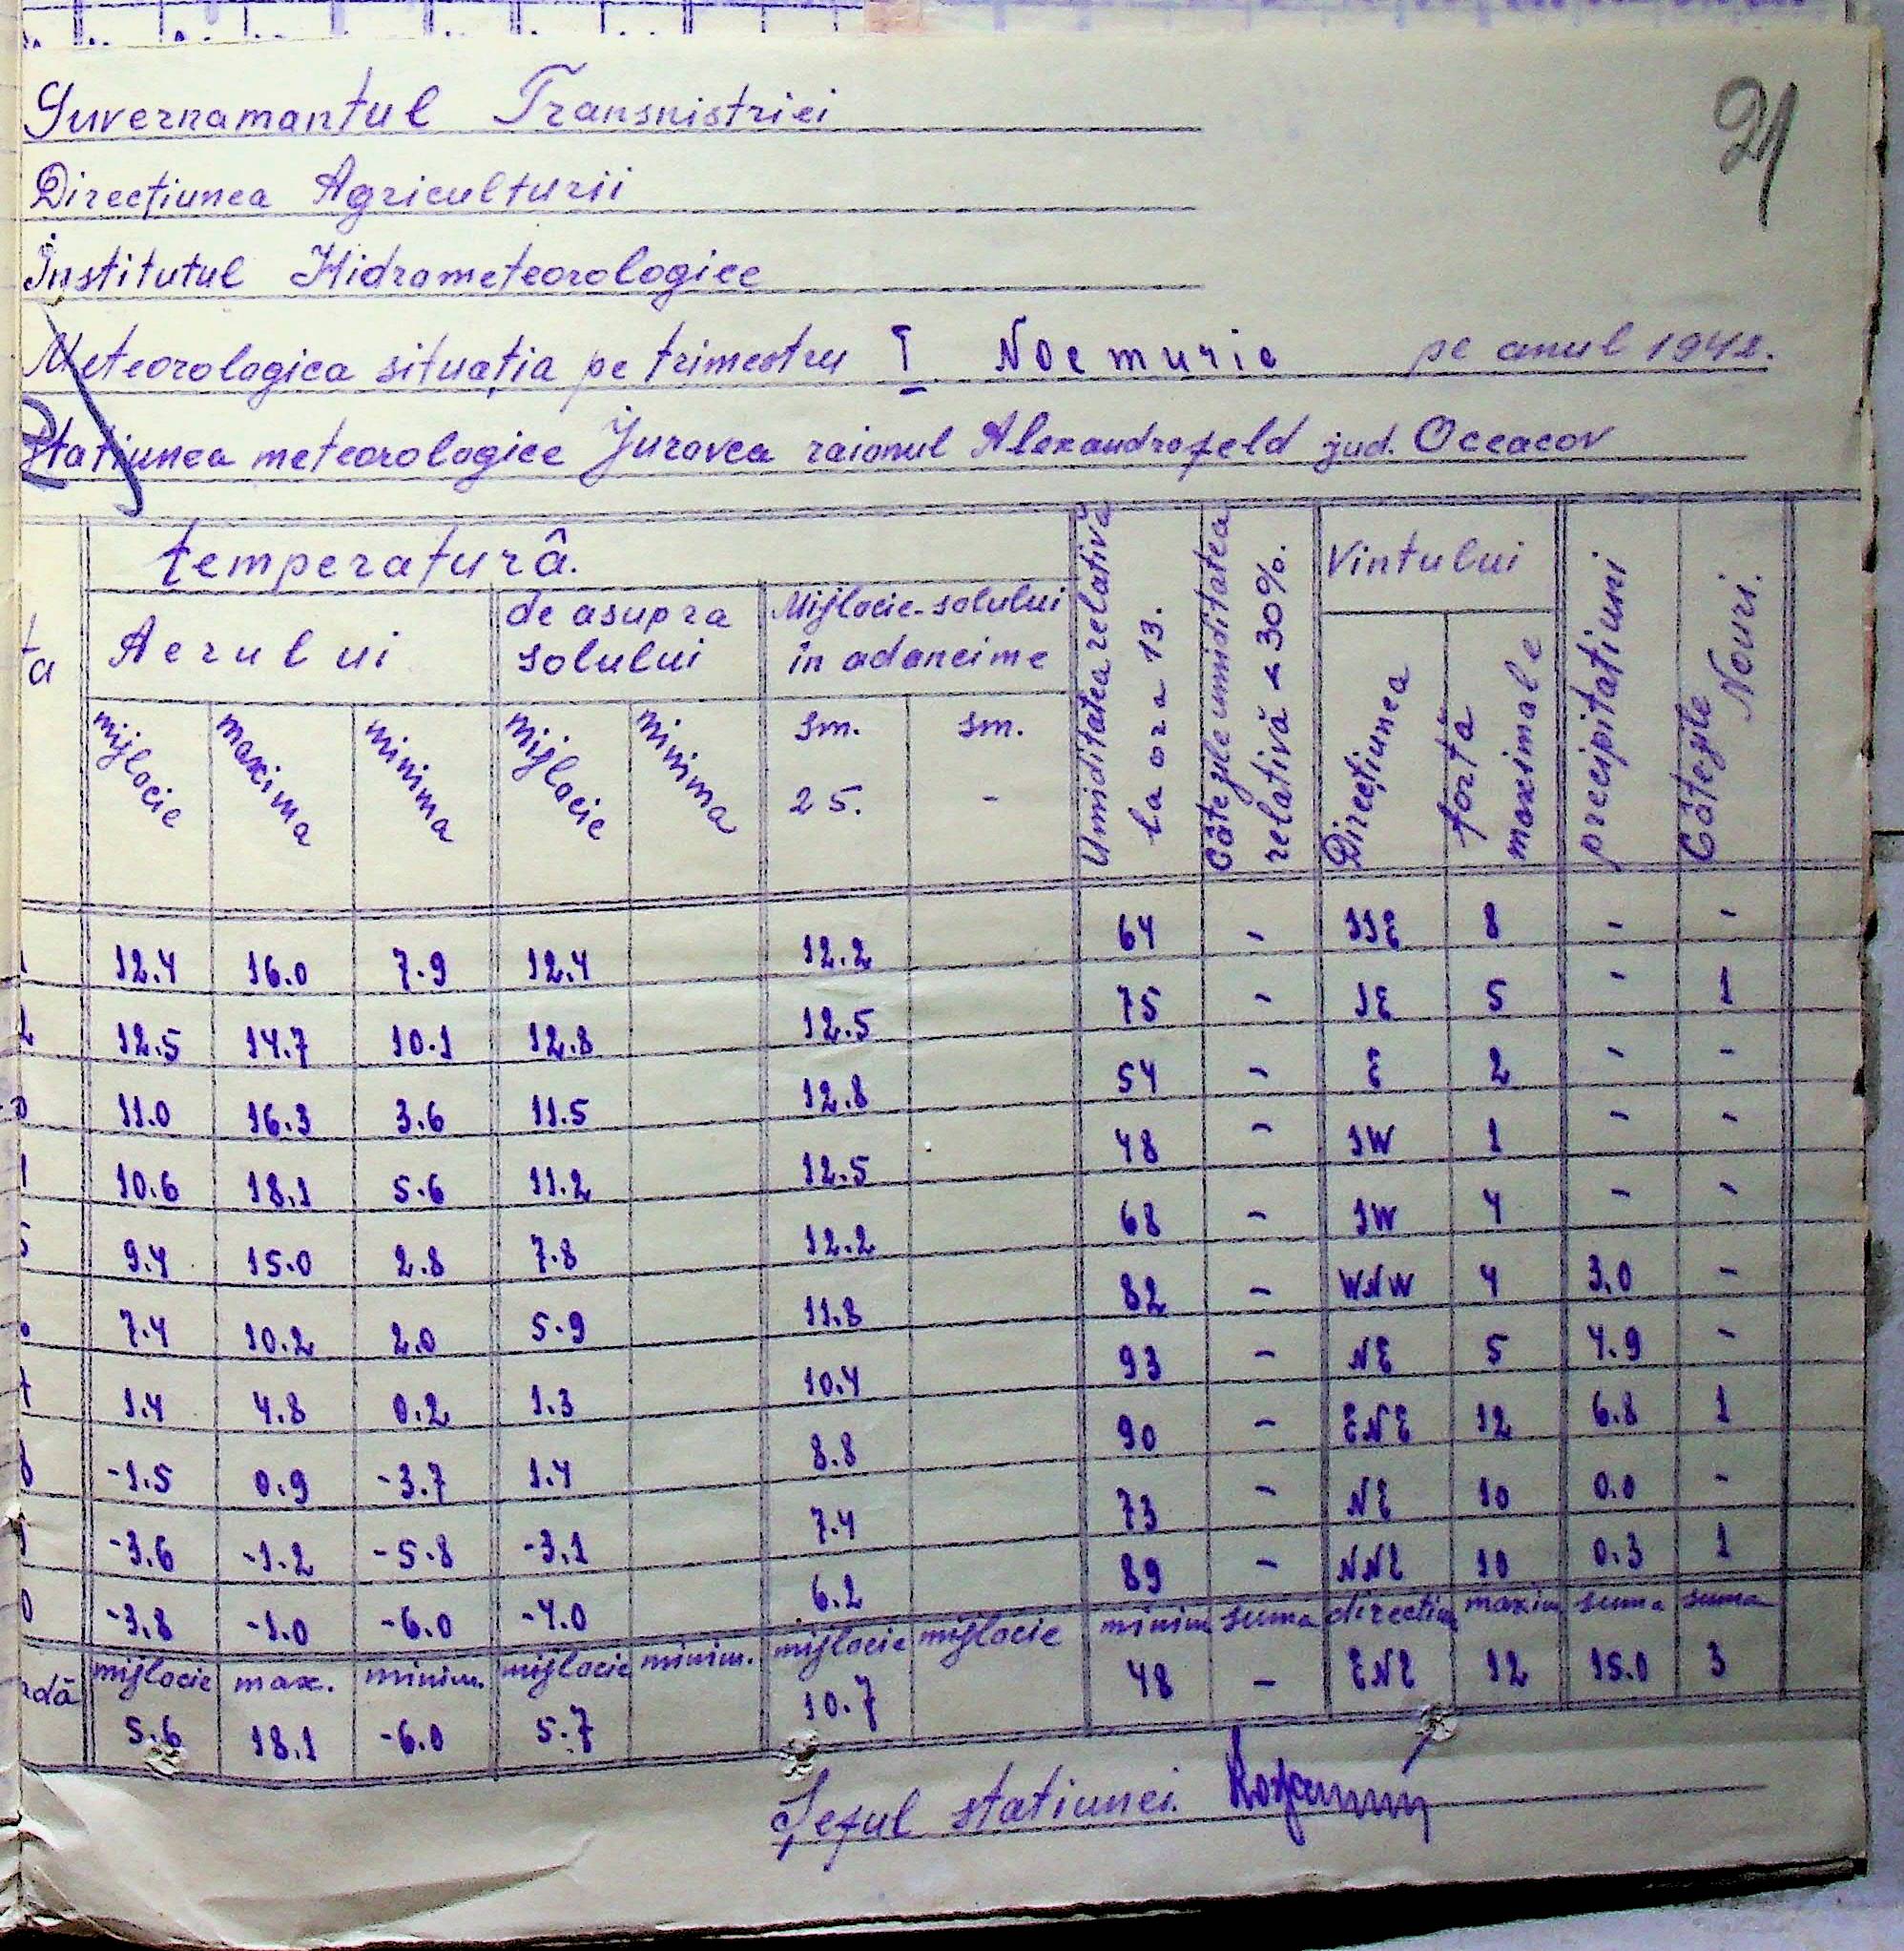 21
Guvernamantul Transnistriei
Direcțiunea Agriculturii
Institutul Hidrometeorologice
Meteorologica situația pe trimestru I Noemurie pe anul 1942.
Statiunea meteorologice Jurovca raionul Alexandrofeld jud. Oceacov
ta temperaturâ. Umiditatea relativă la ora 13. Câte zile umiditatea relativă < 30%. Vintului precipitatiuni Câte zile Nouri.
Aerului de asupra solului Mijlocie-solului in adancime Direcțiunea forta maximale
mijlocie maxima minima mijlocie minima sm. 25. sm. -
1 12.4 16.0 7.9 12.4 12.2 64 - SSE 8 - -
2 12.5 14.7 10.1 12.8 12.5 75 - SE 5 - 1
3 11.0 16.3 3.6 11.5 12.8 54 - E 2 - -
10.6 18.1 5.6 11.2 12.5 48 - SW 1 - -
5 9.4 15.0 2.8 7.8 12.2 68 - SW 4 - -
7.4 10.2 2.0 5.9 11.8 82 - WNW 4 3.0 -
7 1.4 4.8 0.2 1.3 10.4 93 - NE 5 4.9 -
8 -1.5 0.9 -3.7 1.4 8.8 90 - ENE 12 6.8 1
-3.6 -1.2 -5.8 -3.1 7.4 73 - NE 10 0.0 -
0 -3.8 -1.0 -6.0 -4.0 6.2 89 - NNE 10 0.3 1
adă mijlocie max. minim. mijlocie minim. mijlocie mijlocie minim suma direcțiu maxim suma suma
5.6 18.1 -6.0 5.7 10.7 48 - ENE 12 15.0 3
Șeful statiunei.